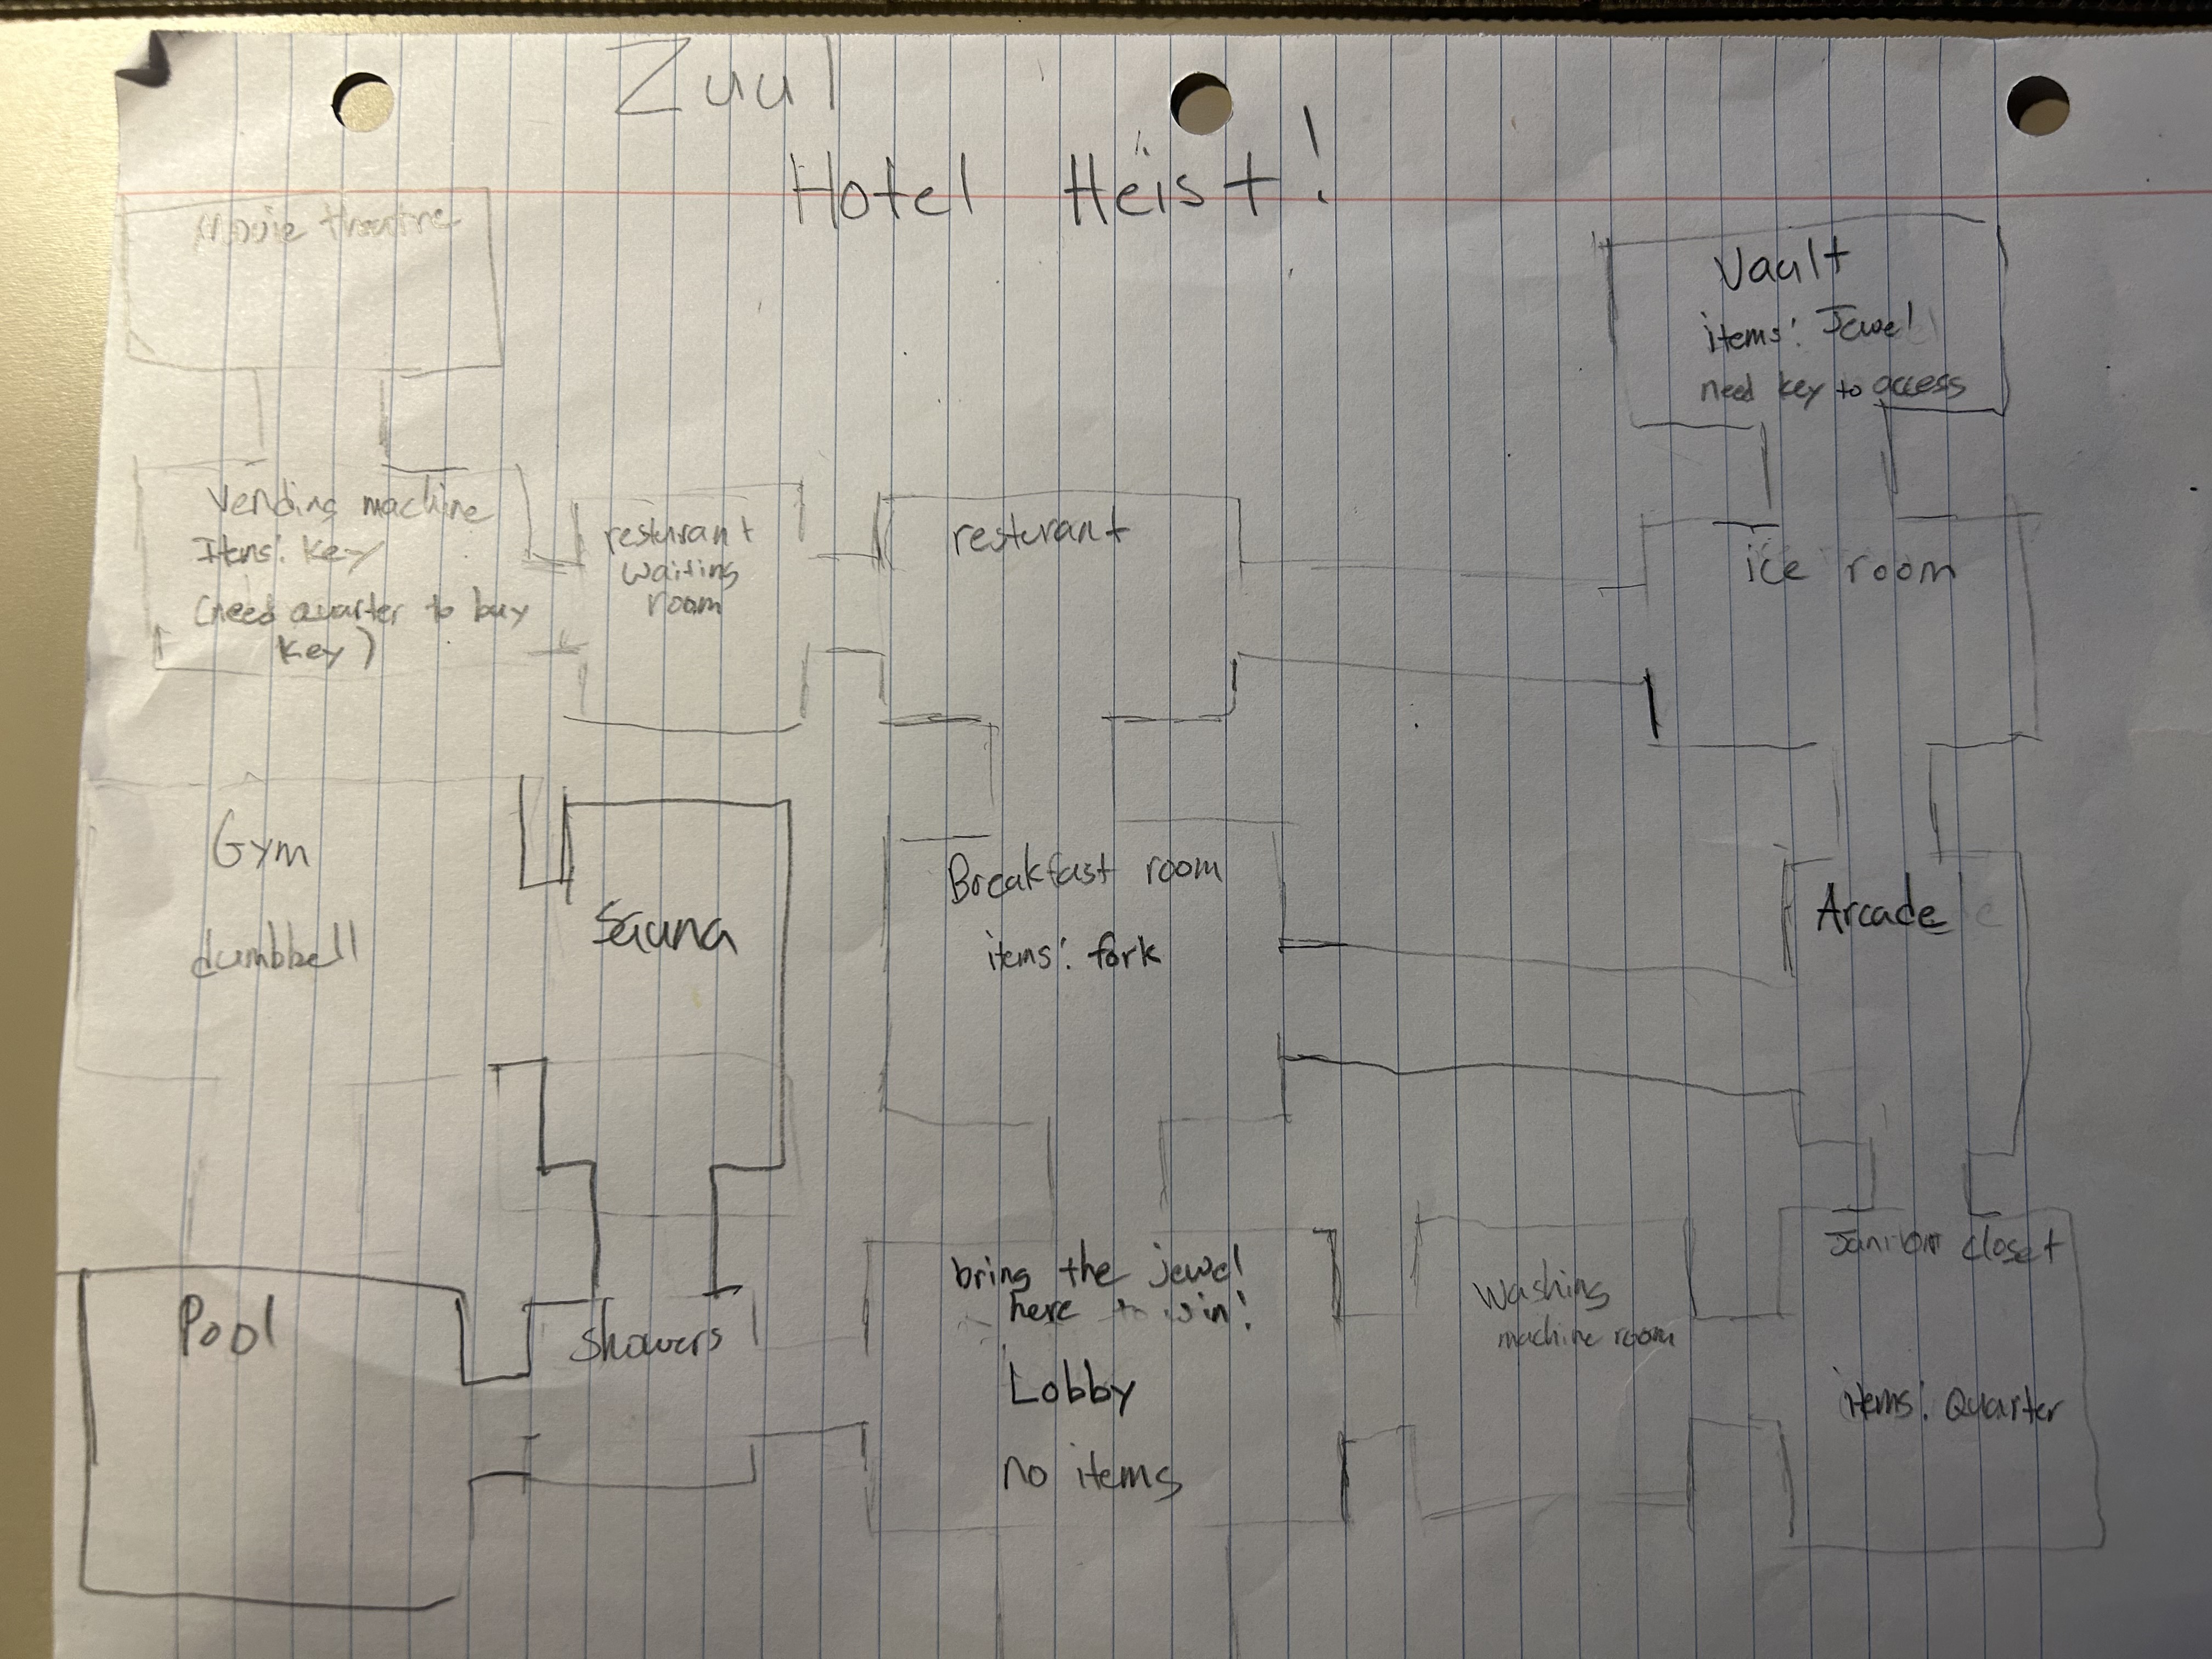 Zuul
Hotel Heist!
Movie theatre
Vault
items: Jewel
need key to access
Vending machine
Items: Key
(need quarter to buy
key)
resturant
waiting
room
resturant
ice room
Gym
dumbbell
Sauna
Breakfast room
items: fork
Arcade
Pool
Showers
bring the jewel
here to win!
Lobby
no items
Washing
machine room
Janitor closet
items: Quarter